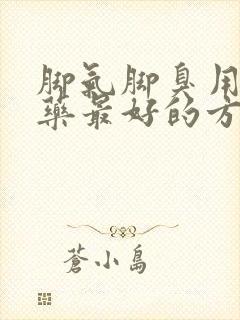 脚氣脚臭用
藥最好的方
蒼小島